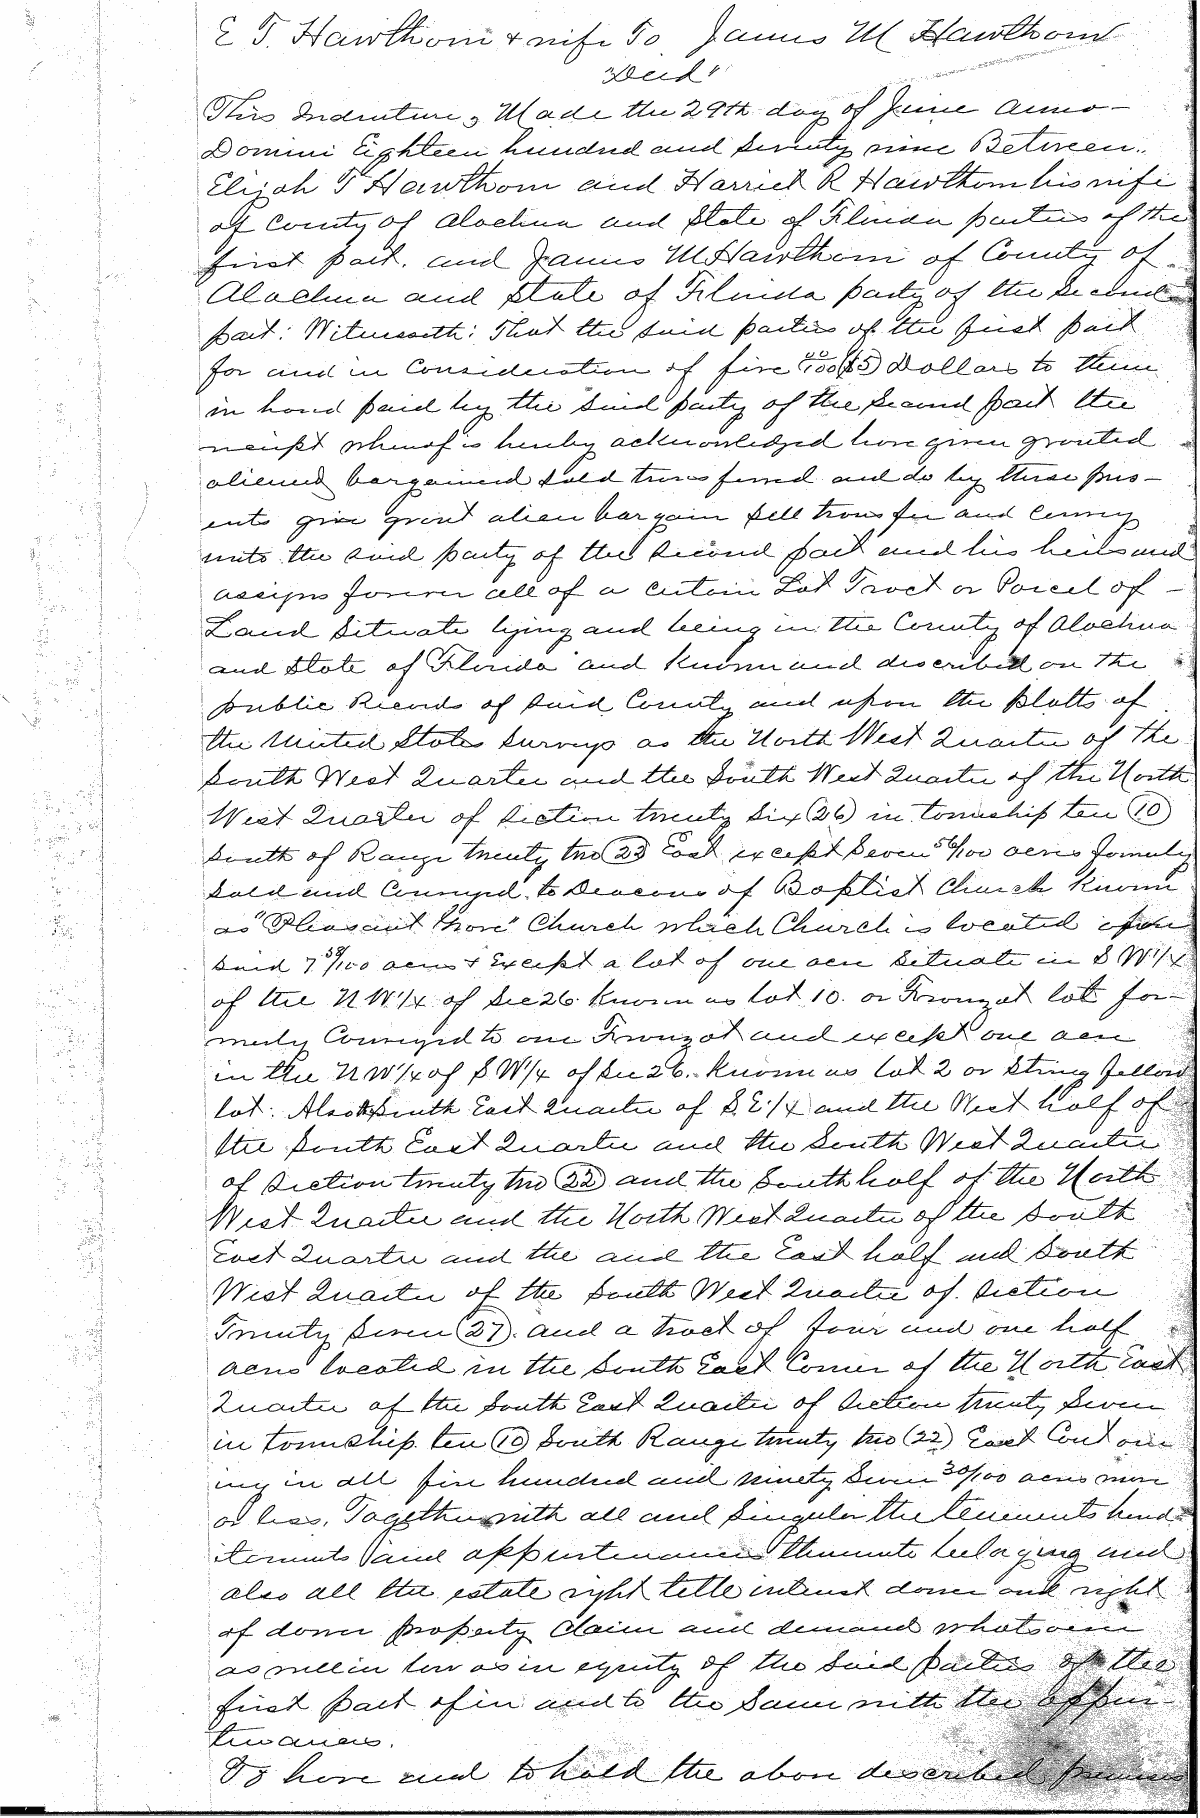 E T. Hawthorn & wife To James M Hawthorn
"Deed"
This Indenture, Made the 29th day of June Anno-
Domini Eighteen hundred and Seventy nine Between..
Elijah T Hawthorn and Harriet R Hawthorn his wife
of County of Alachua and State of Florida parties of the
first part. and James M Hawthorn of County of
Alachua and State of Florida party of the Second
part: Witnesseth: That the said parties of the first part
for and in Consideration of five 00/100 ($5) Dollars to them
in hand paid by the said party of the Second part the
receipt whereof is hereby acknowledged have given granted
aliened bargained sold transferred and do by these pres-
ents give grant alien bargain sell transfer and convey
unto the said party of the second part and his heirs and
assigns forever all of a certain Lot Tract or Parcel of -
Land Situate lying and being in the County of Alachua
and State of Florida and known and described on the
public Records of said County and upon the platts of
the United States Surveys as the North West Quarter of the
South West Quarter and the South West Quarter of the North
West Quarter of Section twenty Six (26) in township ten (10)
South of Range twenty two (22) East except Seven 58/100 acres formerly
sold and Conveyed to Deacons of Baptist Church Known
as "Pleasant Grove" Church which Church is located upon
said 7 58/100 acres & Except a lot of one acre Situate in S W 1/4
of the N W 1/4 of Sec 26 Known as lot 10. or lot for-
merly Conveyed to one and except one acre
in the N W 1/4 of S W 1/4 of Sec 26. Known as lot 2 or String fellow
lot. Also South East Quarter of S.E. 1/4 and the West half of
the South East Quarter and the South West Quarter
of Section twenty two (22) and the South half of the North
West Quarter and the North West Quarter of the South
East Quarter and the and the East half and South
West Quarter of the South West Quarter of Section
Twenty Seven (27). and a tract of four and one half
acres located in the South East Corner of the North East
Quarter of the South East Quarter of Section twenty Seven
in township ten (10) South Range twenty two (22) East Contain
ing in all five hundred and ninety Seven 30/100 acres more
or less. Together with all and Singular the tenements hered-
itaments and appurtenances thereunto belonging and
also all the estate right title interest dower and right
of dower property Claim and demand whatsoever
as well in law as in equity of the Said parties of the
first part of in and to the Same with the appur-
tenances.
To have and to hold the above described premises